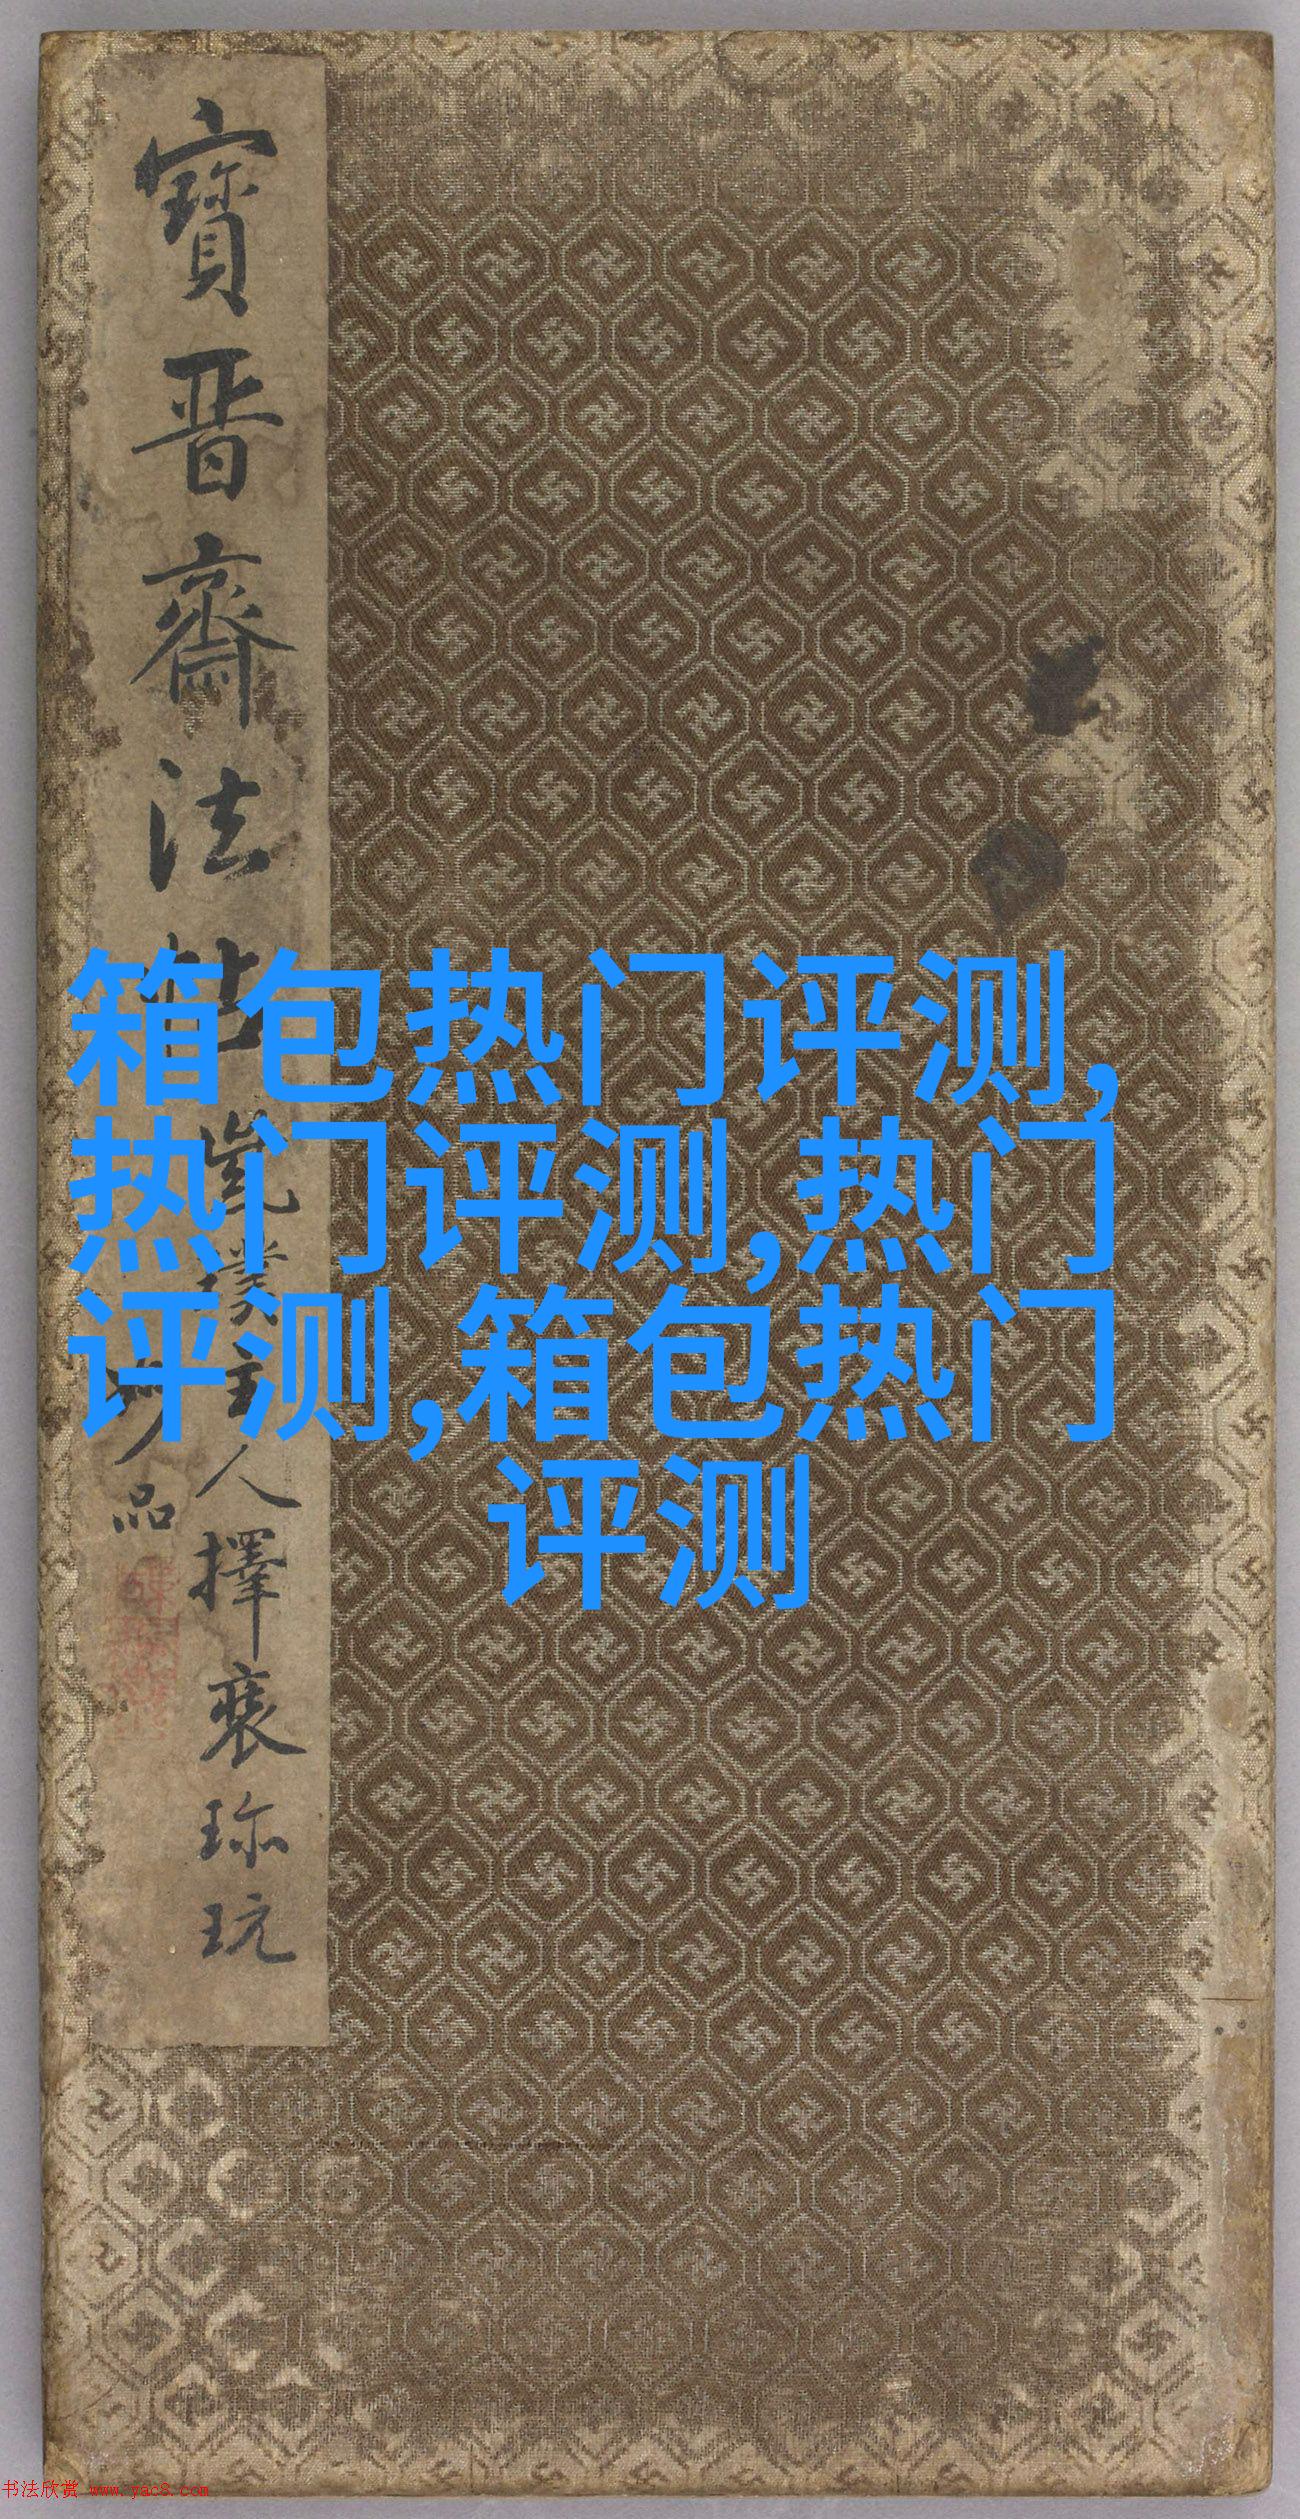 寶晉齋法帖
甆墣主人擇裘珎玩
妙品
箱包热门评测,
热门评测,热门
评测,箱包热门
评测
书法欣赏 www.yac8.com